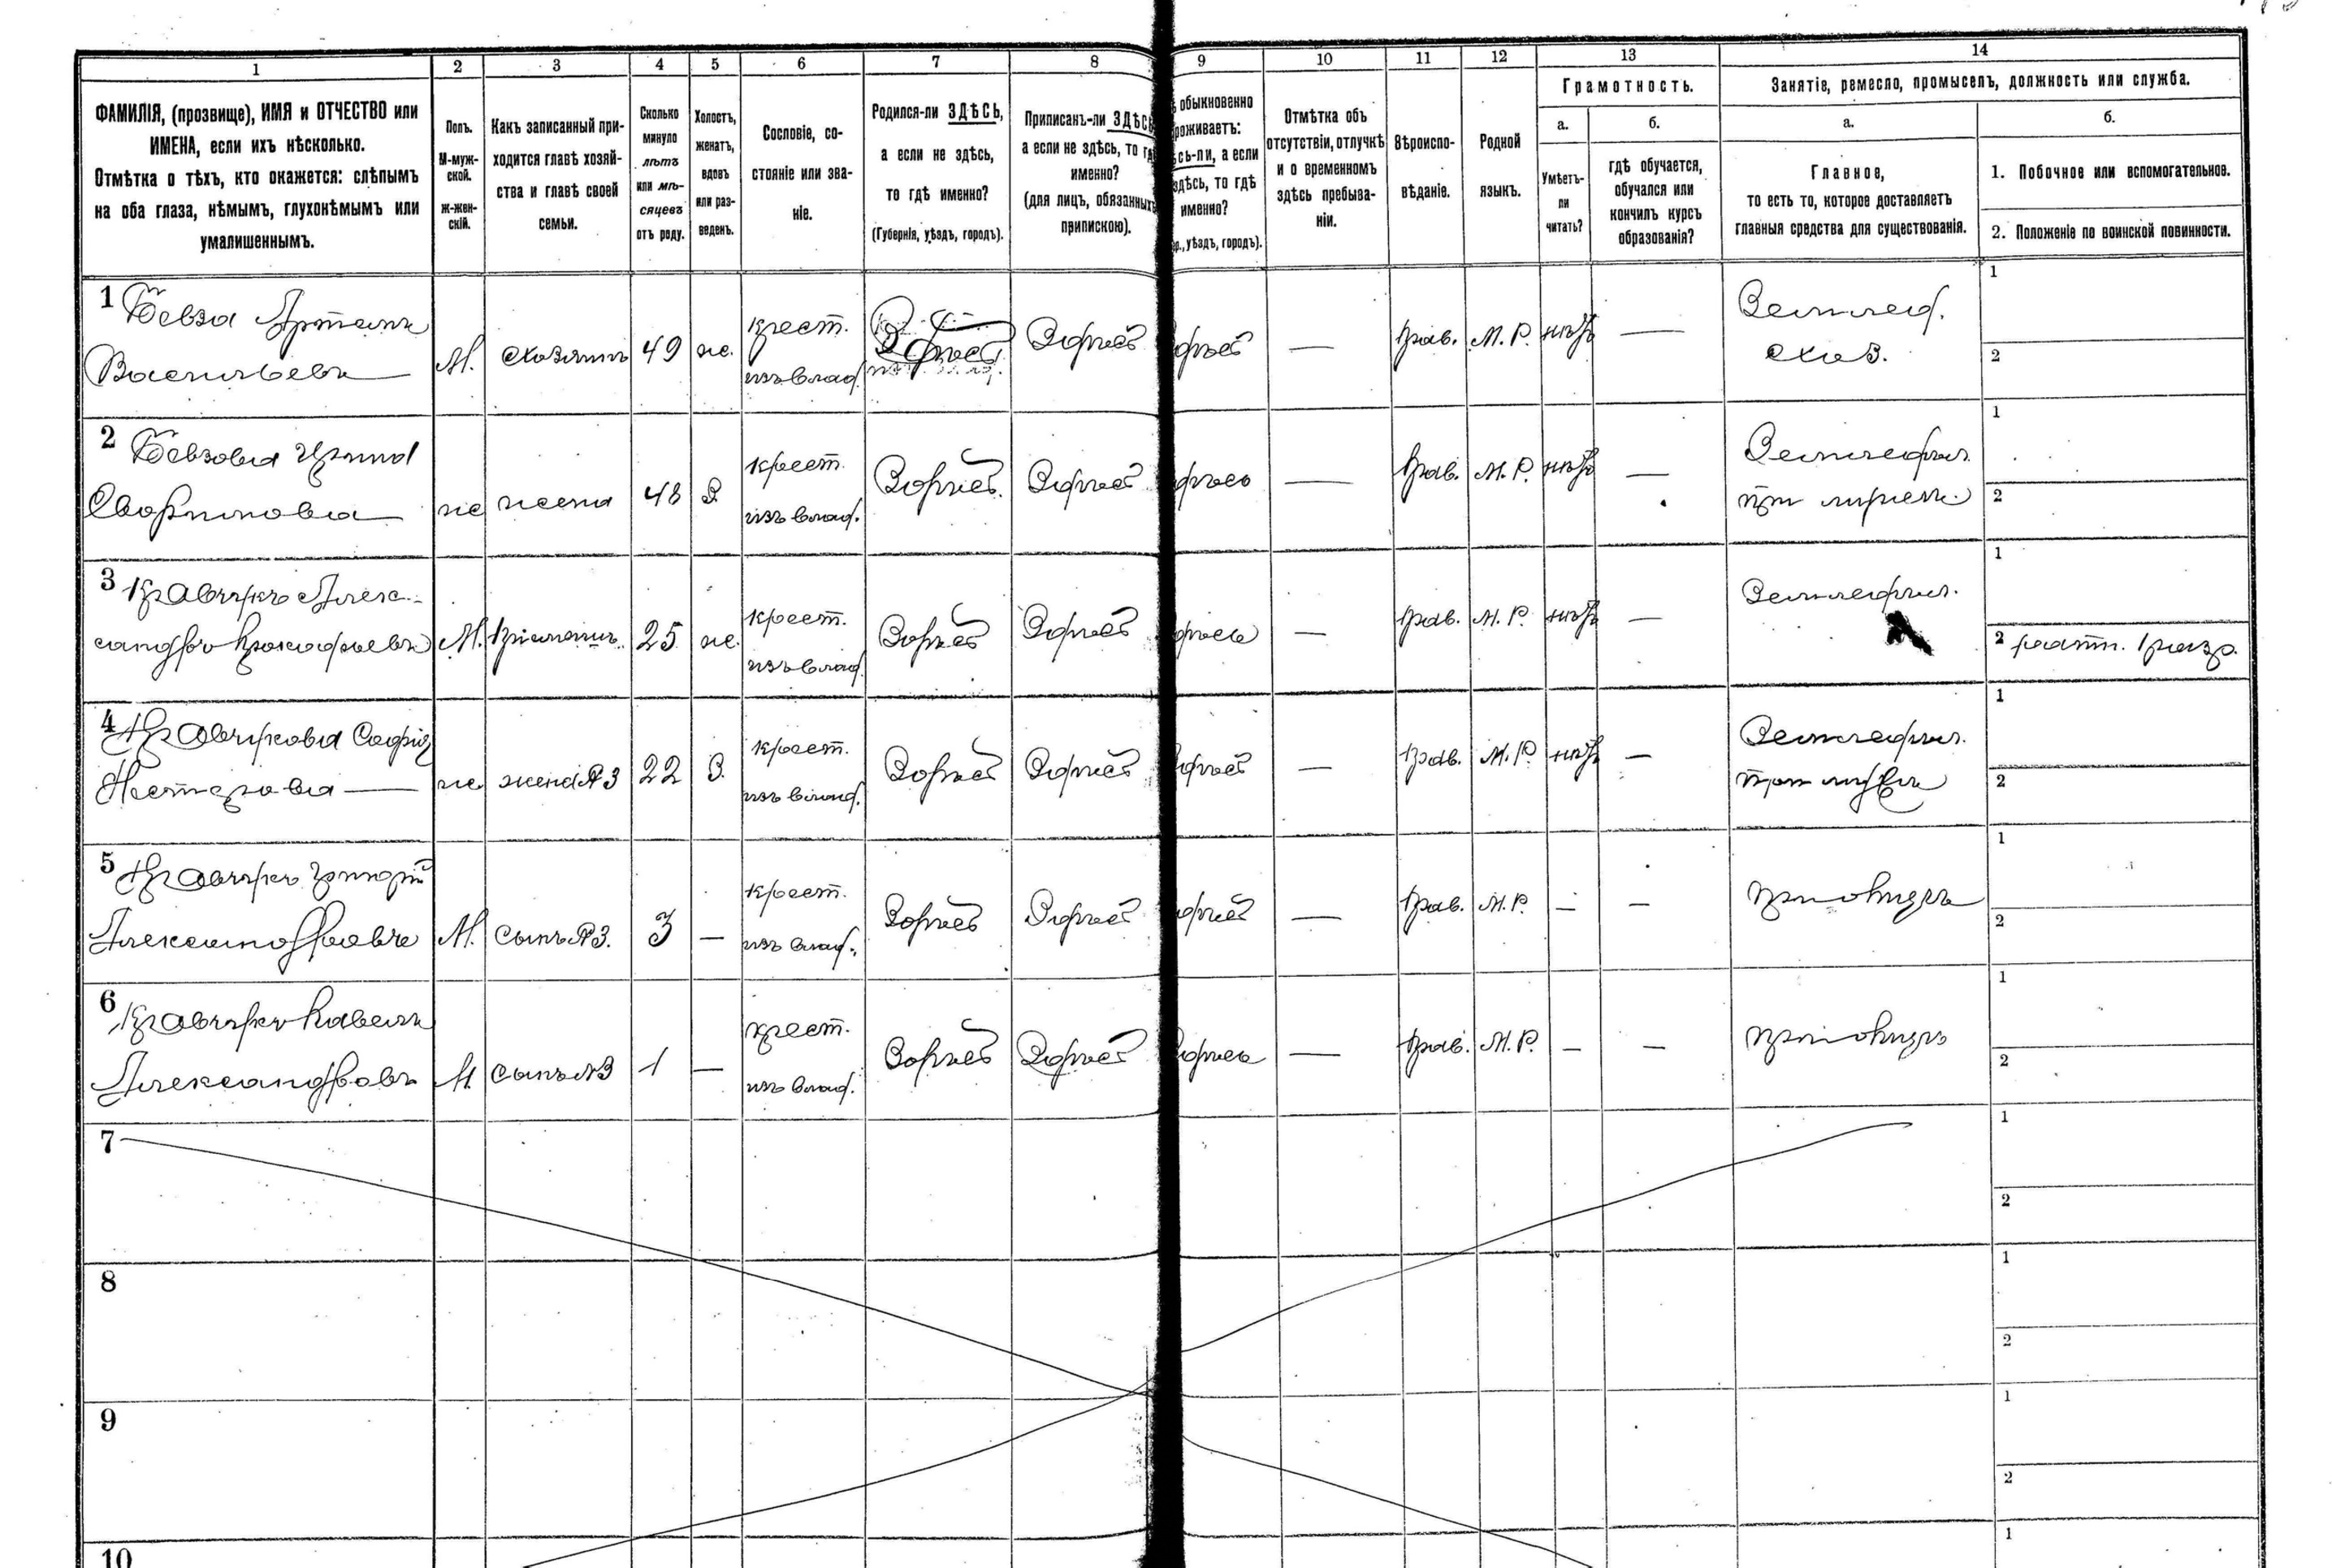 1
2
3
4
5
6
7
8
9
10
11
12
13
14
ФАМИЛІЯ, (прозвище), ИМЯ и ОТЧЕСТВО или
ИМЕНА, если ихъ нѣсколько.
Отмѣтка о тѣхъ, кто окажется: слѣпымъ
на оба глаза, нѣмымъ, глухонѣмымъ или
умалишеннымъ.
Полъ.
М-муж-
ской.
ж-жен-
скій.
Какъ записанный при-
ходится главѣ хозяй-
ства и главѣ своей
семьи.
Сколько
минуло
лѣтъ
или мѣ-
сяцевъ
отъ роду.
Холостъ,
женатъ,
вдовъ
или раз-
веденъ.
Сословіе, со-
стояніе или зва-
ніе.
Родился-ли ЗДѢСЬ,
а если не здѣсь,
то гдѣ именно?
(Губернія, уѣздъ, городъ).
Приписанъ-ли ЗДѢСЬ
а если не здѣсь, то гд
именно?
(для лицъ, обязанныхъ
припискою).
обыкновенно
роживаетъ:
сь-ли, а если
здѣсь, то гдѣ
именно?
р., уѣздъ, городъ).
Отмѣтка объ
отсутствіи, отлучкѣ
и о временномъ
здѣсь пребыва-
ніи.
Вѣроиспо-
вѣданіе.
Родной
языкъ.
Грамотность.
а.
б.
Умѣетъ-
ли
читать?
гдѣ обучается,
обучался или
кончилъ курсъ
образованія?
Занятіе, ремесло, промыселъ, должность или служба.
а.
б.
Главное,
то есть то, которое доставляетъ
главныя средства для существованія.
1. Побочное или вспомогательное.
2. Положеніе по воинской повинности.
1 Бевза Артемъ
Васильевъ
М. хозяинъ 49 ж. крест.
изъ влад. Здѣсь Здѣсь дѣсь — прав. М. Р. нѣтъ — Землед.
хоз.
1
2
2 Бевзова
ж жена 48 З. крест.
изъ влад. Здѣсь Здѣсь дѣсь — прав. М. Р. нѣтъ — Земледѣл.
при мужѣ
1
2
3 Кравчукъ Алек-
сандръ Прокофьевъ М. 25 ж. крест.
изъ влад. Здѣсь Здѣсь дѣсь — прав. М. Р. нѣтъ — Земледѣл.
1
2 ратн. 1 разр.
4 Кравчукова Софія
Нестерова — ж. жена №3 22 З. крест.
изъ влад. Здѣсь Здѣсь дѣсь — прав. М. Р. нѣтъ — Земледѣл.
при мужѣ
1
2
5 Кравчукъ Григорій
Александровъ М. сынъ №3. 3 — крест.
изъ влад. Здѣсь Здѣсь дѣсь — прав. М. Р. — — при отцѣ
1
2
6 Кравчукъ Павелъ
Александровъ М. сынъ №3 1 — крест.
изъ влад. Здѣсь Здѣсь дѣсь — прав. М. Р. — — при отцѣ
1
2
7
1
2
8
1
2
9
1
2
10
1